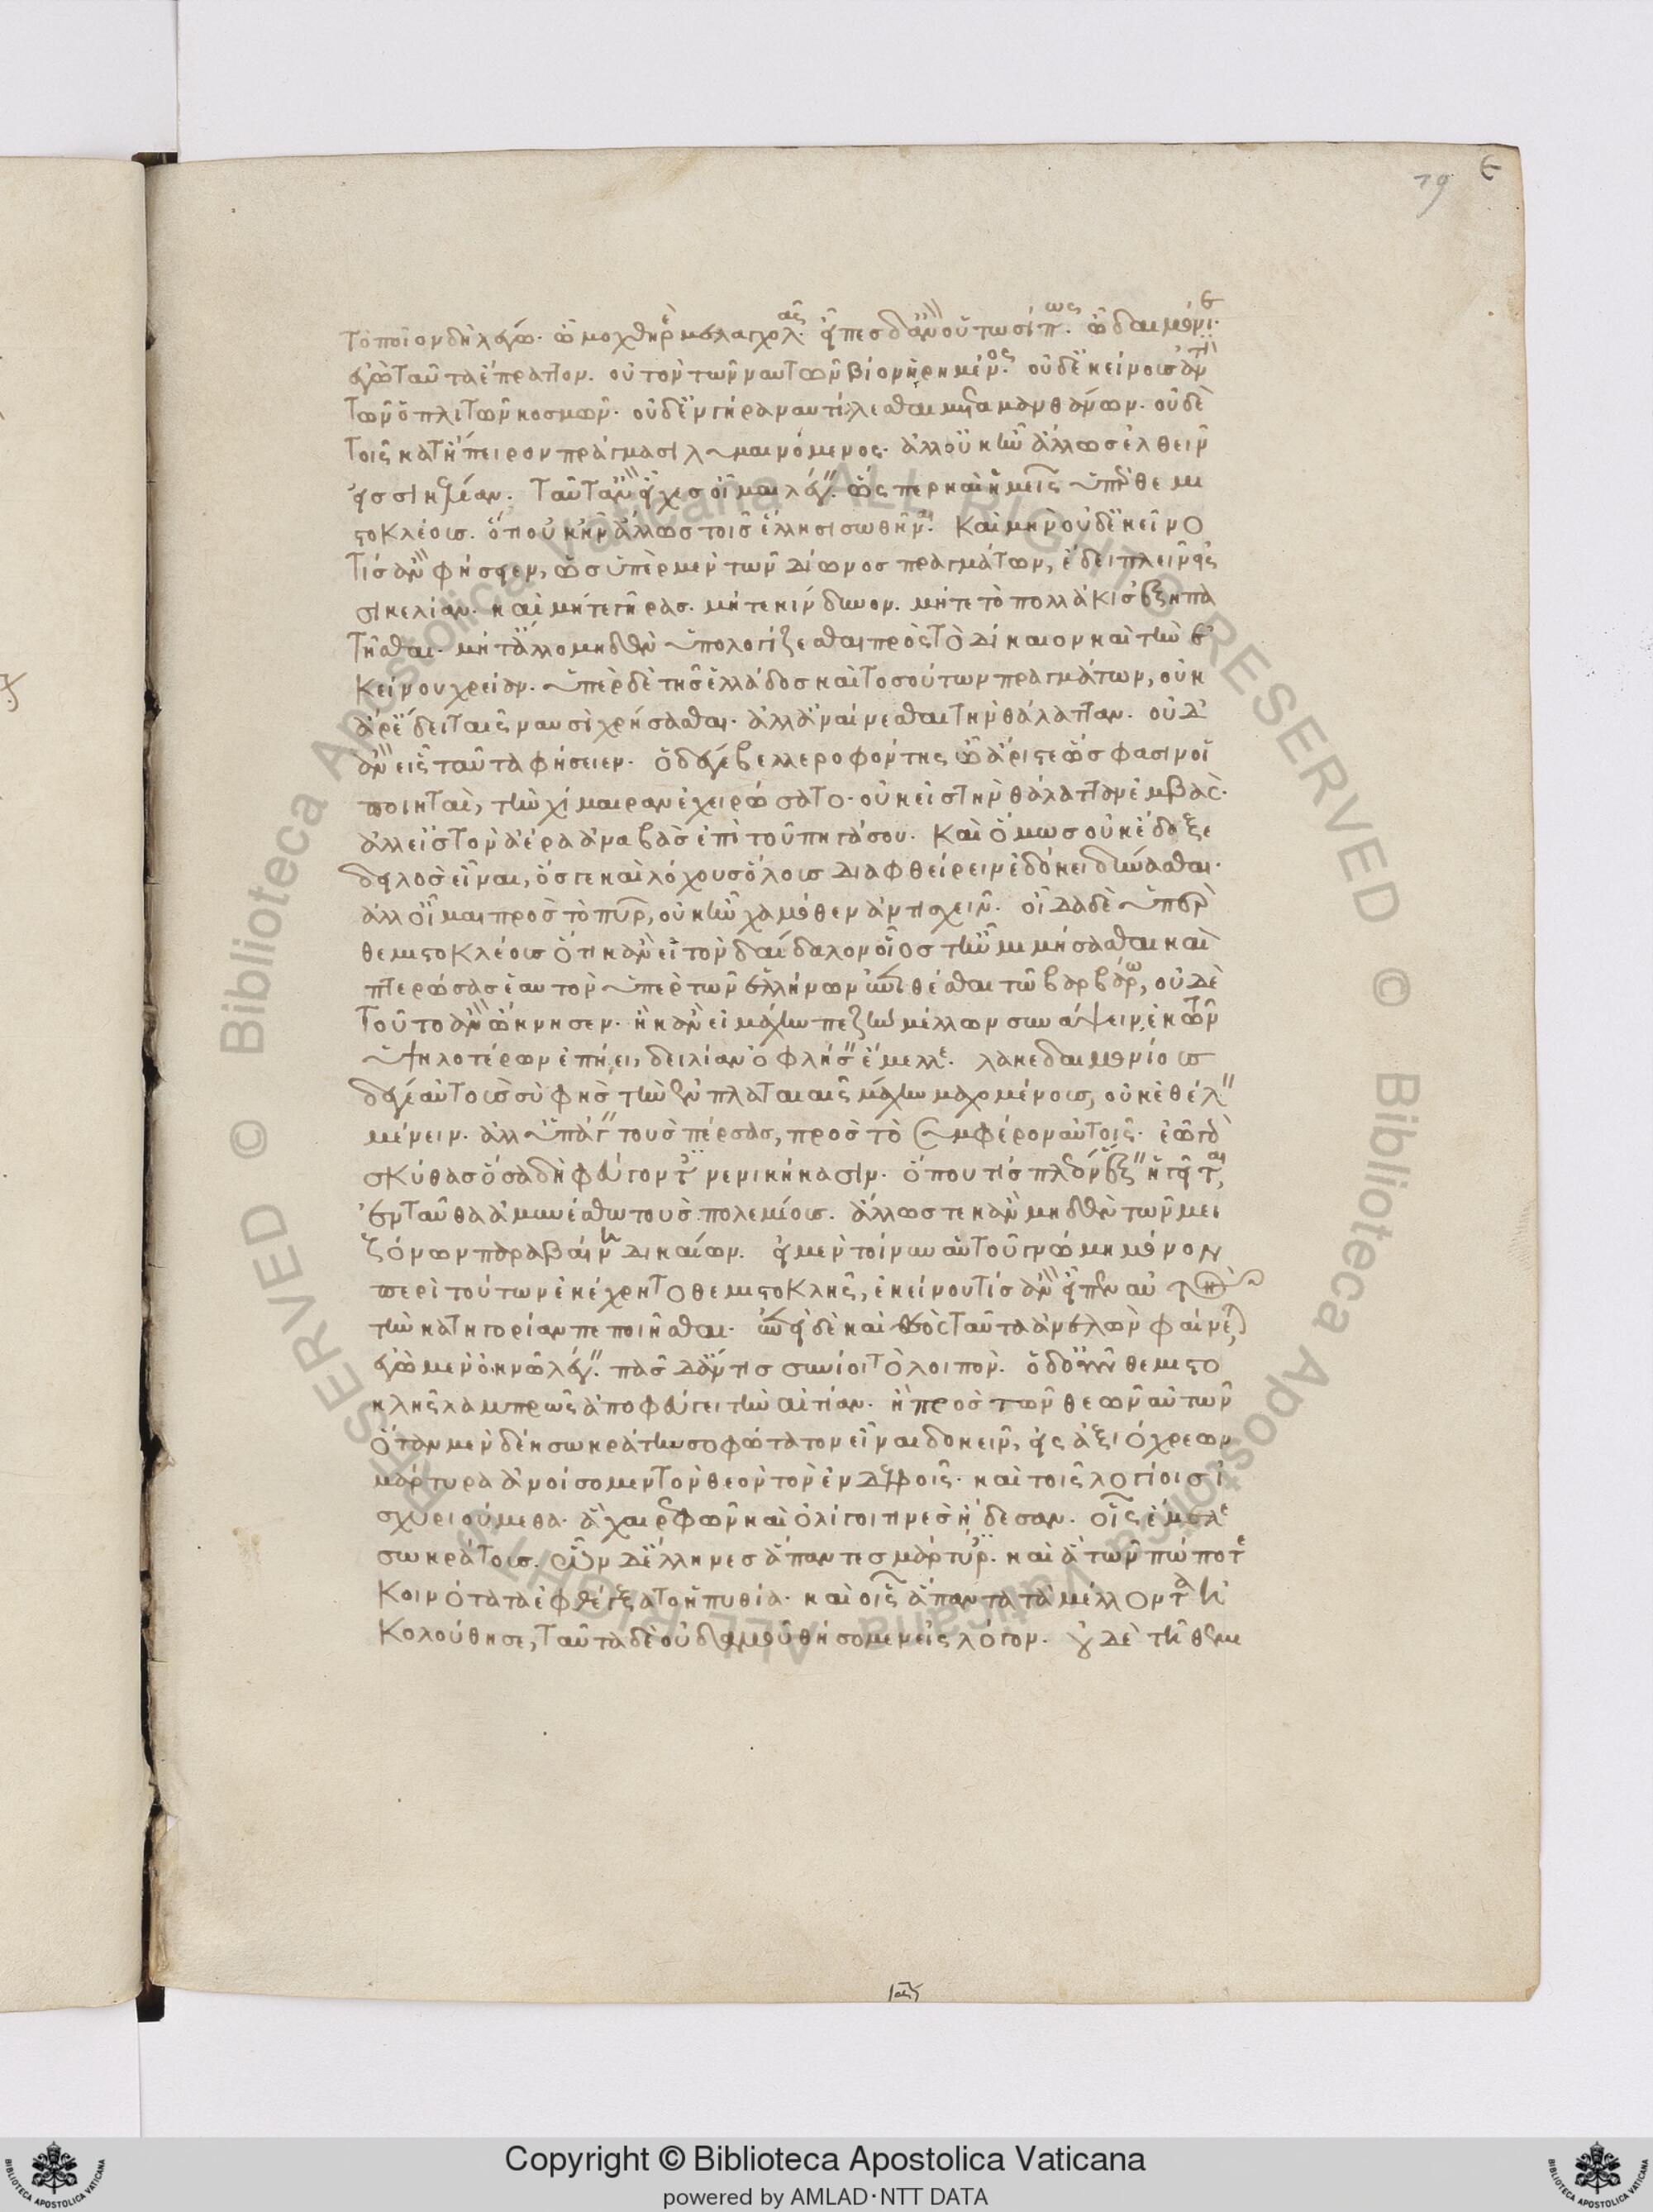 19 ε
τὸ ποῖον δὴ λέγω. ὦ μοχθηρὲ μελαγχολᾷς. εἶπες δ' ἂν οὑτωσί πως. ὦ δαιμόνιε
ἐγὼ ταῦτα ἔπραττον. οὐ τὸν τῶν ναυτῶν βίον ᾑρημένος. οὐδ' ἐκείνους ἀντὶ
τῶν ὁπλιτῶν κοσμῶν. οὐδ' ἐν γήρᾳ ναυτίλλεσθαι μεταμανθάνων. οὐδὲ
τοῖς κατ' ἤπειρον πράγμασι λυμαινόμενος. ἀλλ' οὐκ ἦν ἄλλως ἐλθεῖν
εἰς σικελίαν. ταῦτ' ἂν εἶχες οἶμαι λέγειν. ὥσπερ καὶ ἡμεῖς ὑπὲρ θεμι
στοκλέους. ὅτι οὐκ ἦν ἄλλως τοῖς ἕλλησι σωθῆναι. καὶ μὴν οὐδ' ἐκεῖνο
τίς ἂν φήσειεν, ὡς ὑπὲρ μὲν τῶν δίωνος πραγμάτων, ἔδει πλεῖν εἰς
σικελίαν. καὶ μήτε γῆρας. μήτε κίνδυνον. μήτε τὸ πολλάκις ἐξηπα
τῆσθαι. μήτ' ἄλλο μηδὲν ὑπολογίζεσθαι πρὸς τὸ δίκαιον καὶ τὴν ἐ
κείνου χρείαν. ὑπὲρ δὲ τῆς ἑλλάδος καὶ τοσούτων πραγμάτων, οὐκ
ἄρ' ἔδει ταῖς ναυσὶ χρήσασθαι. ἀλλ' ἀναίνεσθαι τὴν θάλατταν. οὐδ'
ἂν εἷς ταῦτα φήσειεν. ὁ δέ γε βελλεροφόντης ὦ ἄριστε ὥς φασιν οἱ
ποιηταὶ, τὴν χίμαιραν ἐχειρώσατο. οὐκ εἰς τὴν θάλατταν ἐμβάς.
ἀλλ' εἰς τὸν ἀέρα ἀναβὰς ἐπὶ τοῦ πηγάσου. καὶ ὅμως οὐκ ἔδοξε
δειλὸς εἶναι, ὅς γε καὶ λόχους ὅλους διαφθείρειν ἐδόκει δύνασθαι.
ἀλλ' οἶμαι πρὸς τὸ πῦρ, οὐκ ἦν χαμόθεν ἀντισχεῖν. οἶδα δὲ ὑπὲρ
θεμιστοκλέους ὅτι κἂν εἰ τὸν δαίδαλον οἷός τ' ἦν μιμήσασθαι καὶ
πτερώσας ἑαυτὸν ὑπὲρ τῶν ἑλλήνων ἀντιθέσθαι τῶ βαρβάρω, οὐδὲ
τοῦτο ἂν ὤκνησεν. ἢ κἂν εἰ μάχην πεζὴν μέλλων συνάψειν, ἐκ τῶν
ὑψηλοτέρων ἐπῄει, δειλίαν ὀφλήσειν ἔμελλε. λακεδαιμονίους
δέ γε αὐτοὺς σὺ φὴς τὴν ἐν πλαταιαῖς μάχην μαχομένους, οὐκ ἐθέλειν
μένειν. ἀλλ' ὑπάγειν τοὺς πέρσας, πρὸς τὸ συμφέρον αὑτοῖς. ἐῶ γὰρ
σκύθας ὅσα δὴ φεύγοντες νενικήκασιν. ὅπου τίς πλέον ἕξειν ἡγεῖται,
ἐνταῦθα ἀμυνέσθω τοὺς πολεμίους. ἄλλως τε κἂν μηδὲν τῶν μει
ζόνων παραβαίνῃ δικαίων. εἰ μὲν τοίνυν αὐτοῦ γνώμη μόνον
περὶ τούτων ἐκέχρητο θεμιστοκλῆς, ἐκείνου τίς ἂν
τὴν κατηγορίαν πεποιῆσθαι. ἂν εἰ δὲ καὶ θεὸς ταῦτα ἀνελὼν φαίνεται
ἐγὼ μὲν ὀκνῶ λέγειν. πᾶς δ' ἄν τις συνίοι τὸ λοιπόν. ὁ δ' οὖν θεμιστο
κλῆς λαμπρῶς ἀποφεύγει τὴν αἰτίαν. ἢ πρὸς τῶν θεῶν αὐτῶν
ὅταν μὲν δέῃ σωκράτην σοφώτατον εἶναι δοκεῖν, εἰς ἀξιόχρεων
μάρτυρα ἀνοίσομεν τὸν θεὸν τὸν ἐν δελφοῖς. καὶ τοῖς λογίοις ἰ
σχυριούμεθα. ἃ χαιρεφῶν καὶ ὀλίγοι τινὲς ᾔδεσαν. οἷς ἔμελε
σωκράτους. ὧν δ' ἕλληνες ἅπαντες μάρτυρες. καὶ ἃ τῶν πώποτε
κοινότατα ἐφθέγξατο ἡ πυθία. καὶ οἷς ἅπαντα τὰ μέλλοντα ἠ
κολούθησε, ταῦτα δὲ οὐδαμοῦ θήσομεν εἰς λόγον. εἰ δὲ τῆ θεμι
Copyright © Biblioteca Apostolica Vaticana
powered by AMLAD・NTT DATA